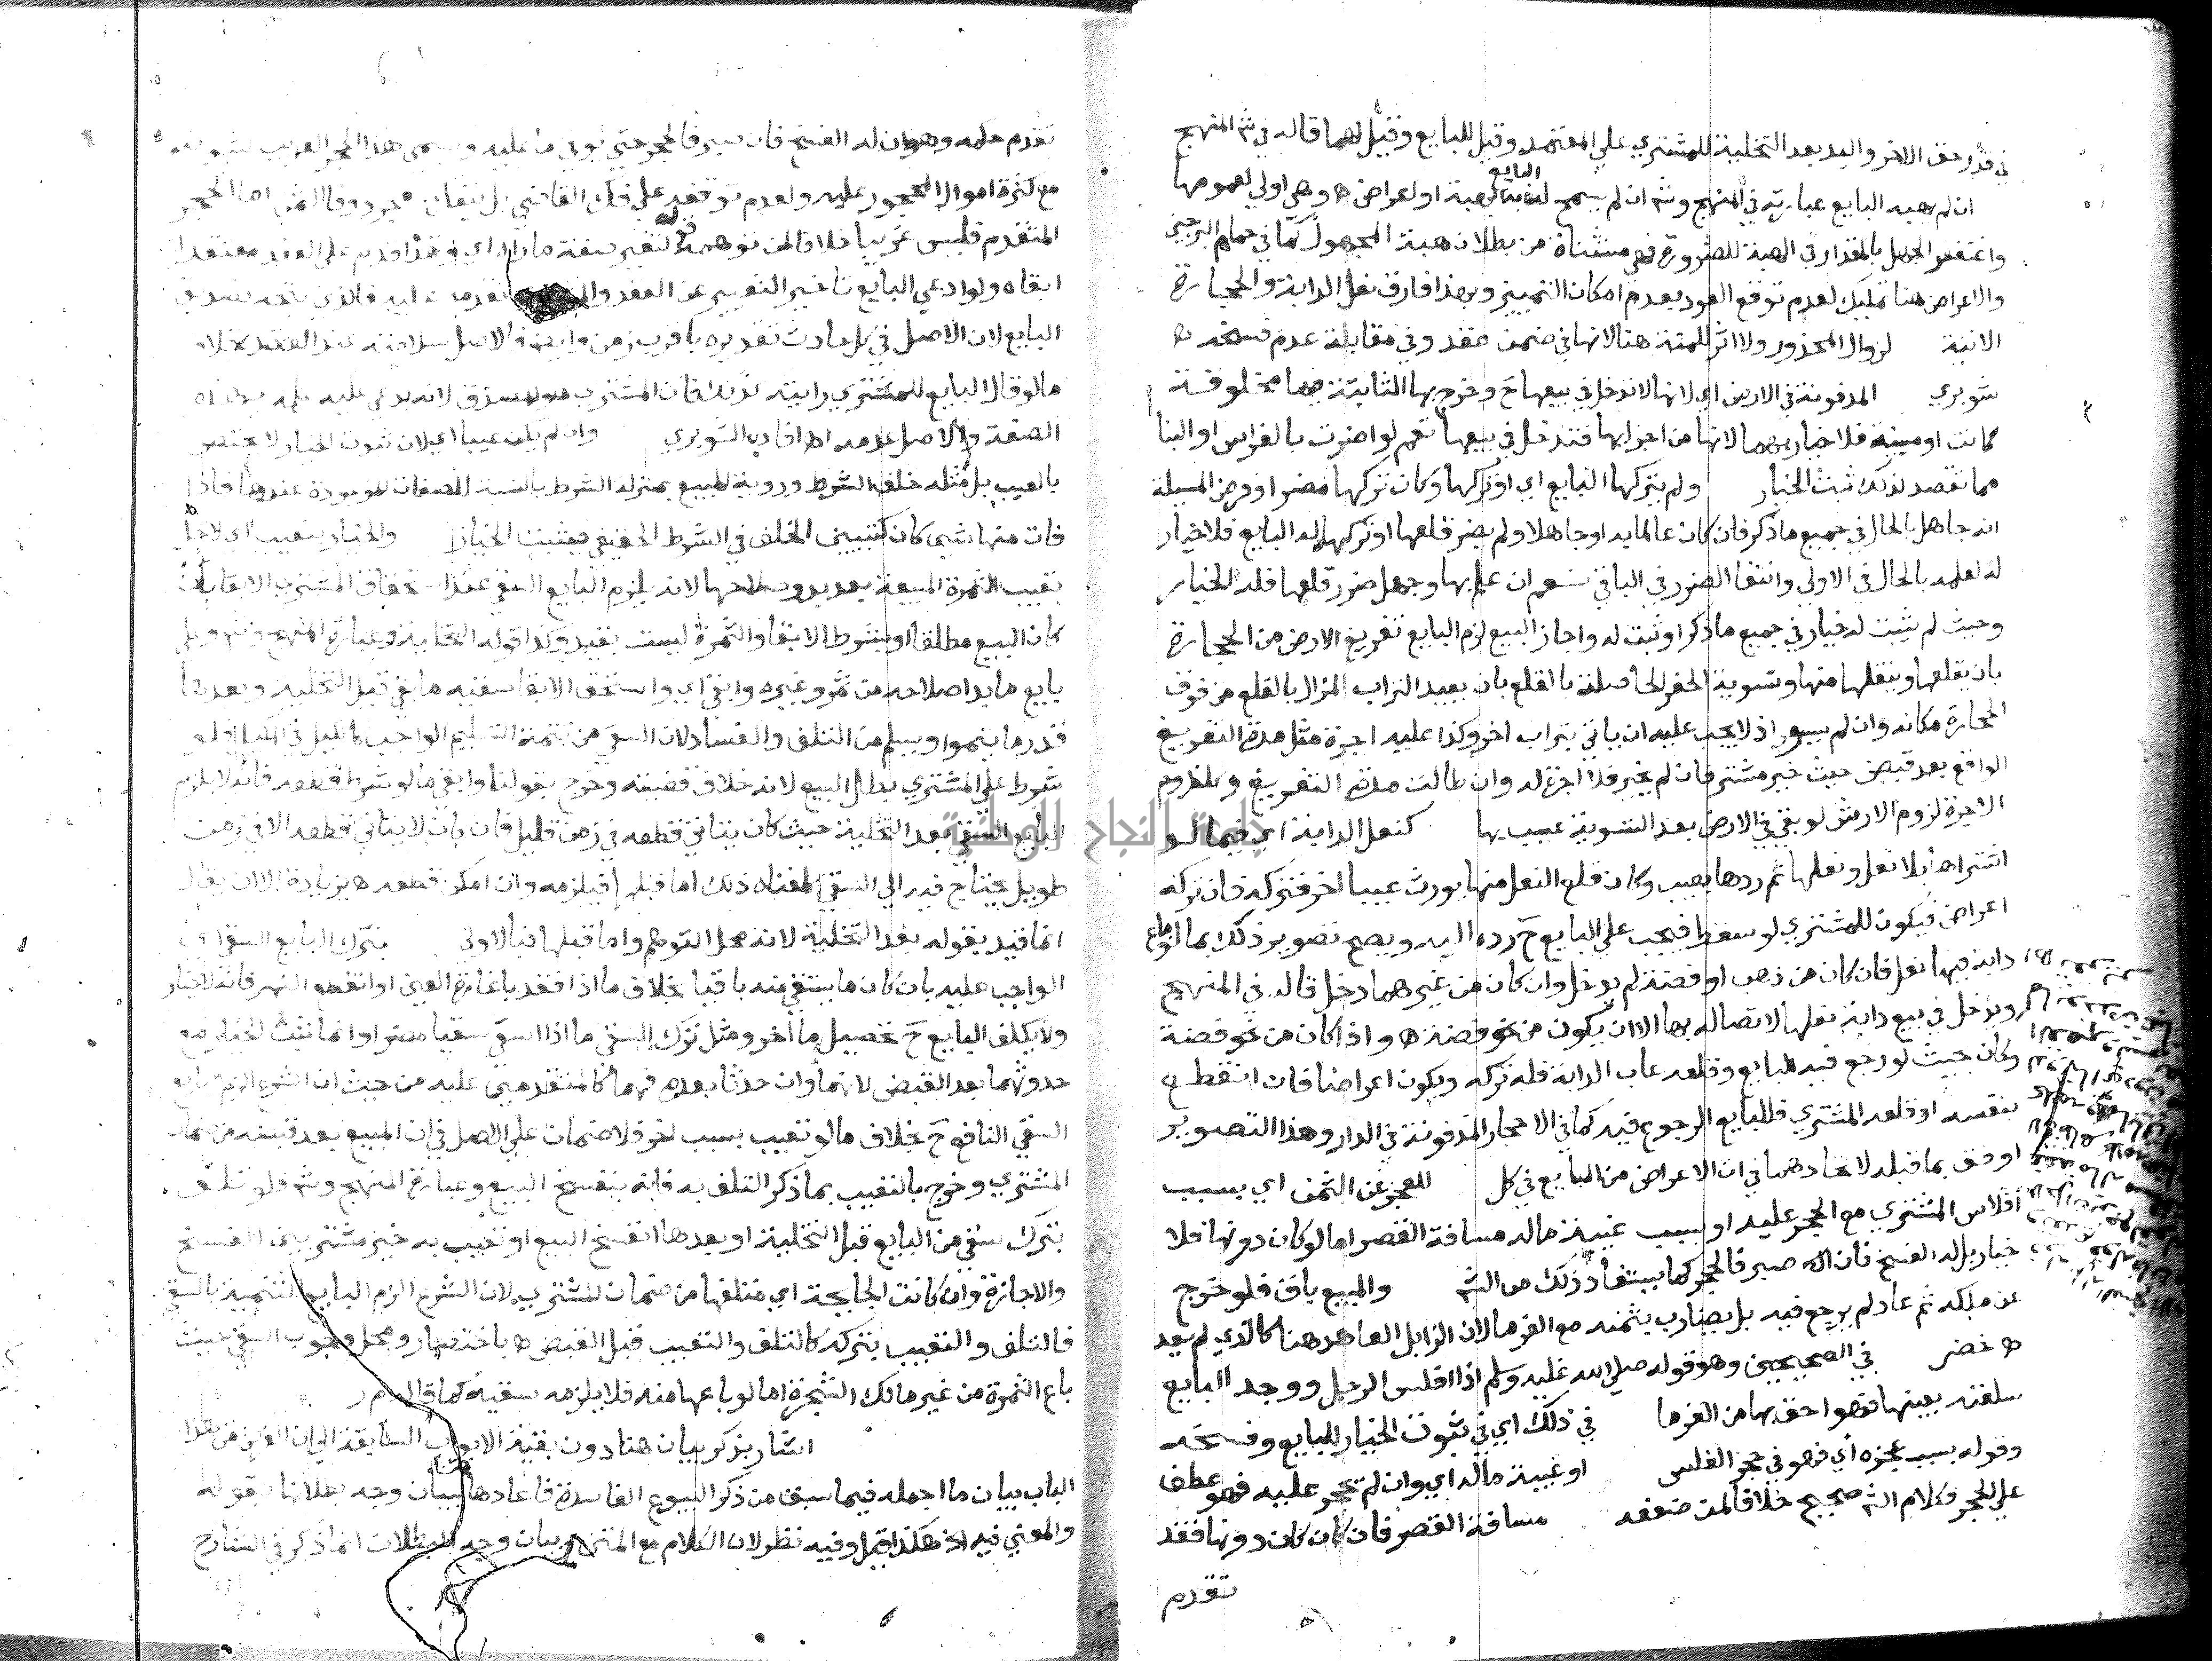 في قدر حق الاخر واليد بعد التخلية للمشتري علي المعتمد وقيل للبايع وقيل لهما قاله في شم المنهج
ان لم يهبه البايع عبارته في المنهج وشم ان لم يسمح له البايع بهبة او اعراض ه وهي اولي لعمومها
واغتفر الجهل بالمقدار في الهبة للضرورة فهي مستثناة من بطلان هبة المجهول كما في حمام البرجين
والاعراض هنا تمليك لعدم توقع العود بعدم امكان التمييز وبهذا فارق نعل الدابة والحجارة
الاتية لزوال المحذور ولا اثر للمنة هنا لانها في ضمن عقد وفي مقابلة عدم فسخه ه
شوبري المدفونة في الارض اي لانها لا تدخل في بيعها ح وخرج بها الثابتة فيها مخلوقة
كانت او مبنية فلا خيار بهما لانها من اجزايها فتدخل في بيعها نعم لو اضرت بالغراس او البنا
مما تقصد لذلك ثبت الخيار ولم يتركها البايع اي او تركها وكان تركها مضرا وفرض المسيلة
انه جاهل بالحال في جميع ما ذكر فان كان عالما به او جاهلا ولم يضر قلعها او تركها له البايع فلا خيار
له لعلمه بالحال في الاولي وانتفا الضرر في الباقي نعم ان علم بها وجهل ضرر قلعها فله الخيار
وحيث لم يثبت له خيار في جميع ما ذكر او ثبت له واجاز البيع لزم البايع تفريغ الارض من الحجارة
بان يقلعها وينقلها منها وتسوية الحفر الحاصلة بالقلع بان يعيد التراب المزال بالقلع من فوق
الحجارة مكانه وان لم يستو اذ لا يجب عليه ان ياتي بتراب اخر وكذا عليه اجرة مثل مدة التفريغ
الواقع بعد قبض حيث خير مشتر فان لم يخير فلا اجرة له وان طالت مدة التفريغ وكلزوم
الاجرة لزوم الارش لو بقي في الارض بعد التسوية عيب بها كنعل الدابة اي فيما لو
اشتراها بلا نعل ونعلها ثم ردها بعيب وكان قلع النعل منها يورث عيبا اخر فتركه فان تركه
اعراض فيكون للمشتري لو سقط فيجب علي البايع ح رده اليه ويصح تصوير ذلك بما لو باع
دابة فيها نعل فان كان من ذهب او فضة لم يدخل وان كان من غيرهما دخل قاله في المنهج
ويدخل في بيع دابة نعلها لاتصاله بها الا ان يكون من نحو فضة ه واذا كان من نحو فضة
وكان حيث لو رجع فيه البايع وقلعه عاب الدابة فله تركه ويكون اعراضا فان انقطع
بنفسه او قلعه المشتري فللبايع الرجوع فيه كما في الاحجار المدفونة في الدار وهذا التصوير
اوفق بما قبله لاتحادهما في ان الاعراض من البايع في كل للعجز عن الثمن اي بسبب
افلاس المشتري مع الحجر عليه او بسبب غيبة ماله مسافة القصر اما لو كان دونها فلا
خيار بل له الفسخ فان صبر فالحجر كما يستفاد ذلك من الشم والمبيع باق فلو خرج
عن ملكه ثم عاد لم يرجع فيه بل يضارب بثمنه مع الغرما لان الزايل العايد هنا كالذي لم يعد
ه خضر في الصحيحين وهو قوله صلي الله عليه وسلم اذا افلس الرجل ووجد البايع
سلعته بعينها فهو احق بها من الغرما في ذلك اي في ثبوت الخيار للبايع وفسخه
وقوله بسبب عجزه اي فهو في حجر الفلس او غيبة ماله اي وان لم يحجر عليه فهو عطف
علي الحجر وكلام الشم صحيح خلافا لمن ضعفه مسافة القصر فان كان دونها فقد
تقدم
تقدم حكمه وهو ان له الفسخ فان صبر فالحجر حتي يوفي ما عليه ويسمي هذا الحجر الغريب لثبوته
مع كثرة اموال المحجور عليه ولعدم توقفه علي فك القاضي بل ينفك بمجرد وفا الثمن اما الحجر
المتقدم فليس غريبا خلافا لمن توهمه لتغير صفة ما رآه اي وقد اقدم علي العقد معتقدا
ابقاه ولو ادعي البايع تاخير التغيير عن العقد والمشتري تقدمه عليه فالذي يتجه تصديق
البايع لان الاصل في كل حادث تقديره باقرب زمن وايضا فالاصل سلامته عند العقد خلاف
ما لو قال البايع للمشتري رايته كذلك فان المشتري هو المصدق لانه يدعي عليه علمه بهذه
الصفة والاصل عدمه اه افاده الشوبري وان لم يكن عيبا اي لان ثبوت الخيار لا يختص
بالعيب بل مثله خلف الشرط وروية المبيع بمنزلة الشرط بالنسبة للصفات الموجودة عندها فاذا
فات منها شي كان كتبين الخلف في الشرط الحقيقي فيثبت الخيار والخيار بتعيب اي لاجل
تعيب الثمرة المبيعة بعد بدو صلاحها لانه يلزم البايع السقي عند استحقاق المشتري الابقا بان
كان البيع مطلقا او بشرط الابقا والثمرة ليست بقيد وكذا قوله التخلية وعبارة المنهج وشم وعلي
بايع ما بدا صلاحه من ثمر وغيره وابقي اي واستحق الابقا سقيه ما بقي قبل التخلية وبعدها
قدر ما ينموا ويسلم من التلف والفساد لان السقي من تتمة التسليم الواجب كالكيل في المكيل فلو
شرط علي المشتري بطل البيع لانه خلاف قضيته وخرج بقولنا وابقي ما لو شرط قطعه فانه لا يلزم
البايع السقي بعد التخلية حيث كان يتاتي قطعه في زمن قليل فان كان لا يتاتي قطعه الا في زمن
طويل يحتاج فيه الي السقي كلفناه ذلك اما قبلها فيلزمه وان امكن قطعه ه بزيادة الا ان يقال
انما قيد بقوله بعد التخلية لانه محل التوهم واما قبلها فبالاولي بترك البايع السقي اي
الواجب عليه بان كان ما يستقي منه باقيا بخلاف ما اذا فقد باغارة العين او انقطع النهر فانه لا خيار
ولا يكلف البايع ح تحصيل ما اخر ومثل ترك السقي ما اذا سقي سقيا مضرا وانما يثبت الخيار مع
حدوثهما بعد القبض لانهما وان حدثا بعده فهما كالمتقدمين عليه من حيث ان الشرع الزم البايع
السقي النافع ح بخلاف ما لو تعيب بسبب اخر فلا ضمان علي الاصل في ان المبيع بعد قبضه من ضمان
المشتري وخرج بالتعيب بما ذكر التلف به فانه ينفسخ البيع وعبارة المنهج وشم فلو تلف
بترك سقي من البايع قبل التخلية او بعدها انفسخ البيع او تعيب به خير مشتر بين الفسخ
والاجازة وان كانت الجايحة اي متلفها من ضمان المشتري لان الشرع الزم البايع التنمية بالسقي
فالتلف والتعيب بتركه كالتلف والتعيب قبل القبض ه باختصار ومحل وجوب السقي حيث
باع الثمرة من غير مالك الشجرة اما لو باعها منه فلا يلزمه سقيه كما قاله م ر
اشار بذكر بيان هنا دون بقية الابواب السابقة الي ان الغرض من هذا
الباب بيان ما اجمله فيما سبق من ذكر البيوع الفاسدة فاعادها لبيان وجه بطلانها بقوله
والمعني فيه اه هكذا قيل وفيه نظر لان الكلام مع المتن وبيان وجه البطلان انما ذكر في الشارح